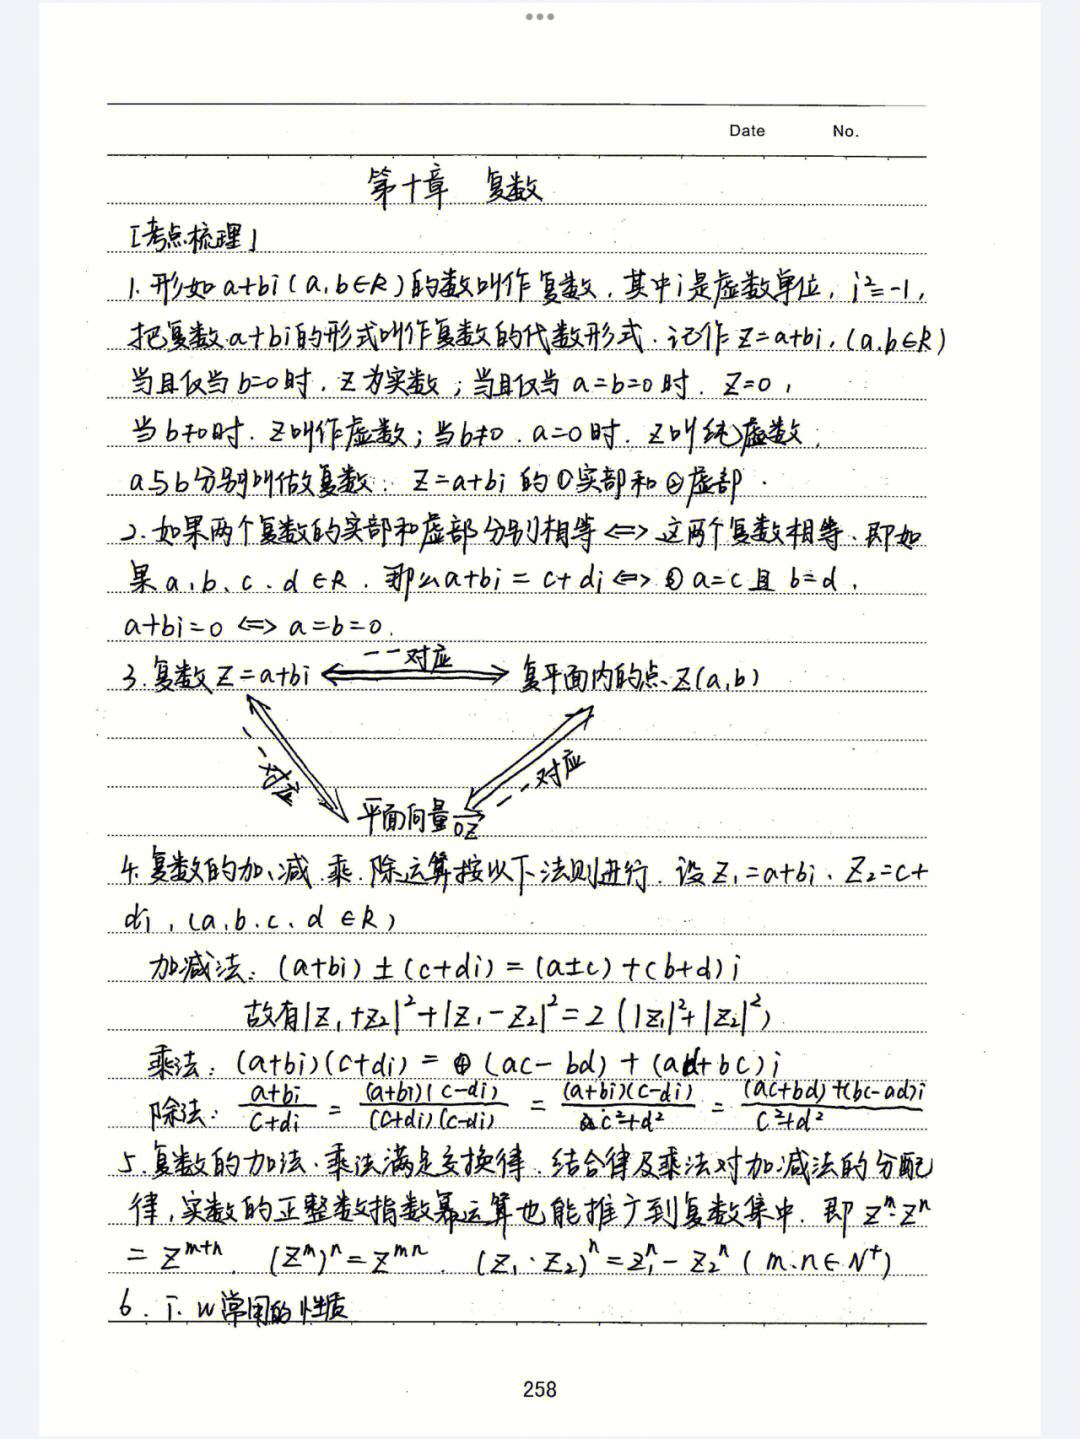 Date No.
第十章 复数
[考点梳理]
1. 形如 a+bi (a,b∈R) 的数叫作复数，其中i是虚数单位，i²=-1，
把复数 a+bi的形式叫作复数的代数形式．记作 Z=a+bi，(a,b∈R)
当且仅当 b=0时，Z为实数；当且仅当 a=b=0时．Z=0，
当b≠0时．Z叫作虚数；当b≠0．a=0时．Z叫纯虚数；
a与b分别叫做复数：Z=a+bi 的①实部和②虚部．
2. 如果两个复数的实部和虚部分别相等 <=> 这两个复数相等、即如
果 a、b、c、d∈R．那么a+bi = c+di <=> ① a=c 且 b=d．
a+bi=0 <=> a=b=0.
一一对应
3. 复数 Z=a+bi 复平面内的点 Z(a,b)
一一对应 一一对应
平面向量 OZ
4. 复数的加、减．乘．除运算按以下法则进行．设 Z₁=a+bi、Z₂=c+
di，(a,b,c,d∈R)
加减法：(a+bi)±(c+di)=(a±c)+(b+d)i
故有|Z₁+Z₂|²+|Z₁-Z₂|²=2(|Z₁|²+|Z₂|²)
乘法：(a+bi)(c+di) = (ac-bd)+(ad+bc)i
除法：(a+bi)/(c+di) = (a+bi)(c-di)/(c+di)(c-di) = (a+bi)(c-di)/c²+d² = (ac+bd)+(bc-ad)i/c²+d²
5. 复数的加法．乘法满足交换律．结合律及乘法对加减法的分配
律，实数的正整数指数幂运算也能推广到复数集中．即 Zᵐ·Zⁿ
= Zᵐ⁺ⁿ．(Zᵐ)ⁿ=Zᵐⁿ．(Z₁·Z₂)ⁿ=Z₁ⁿ-Z₂ⁿ (m.n∈N⁺)
6. i. w常用的性质
258